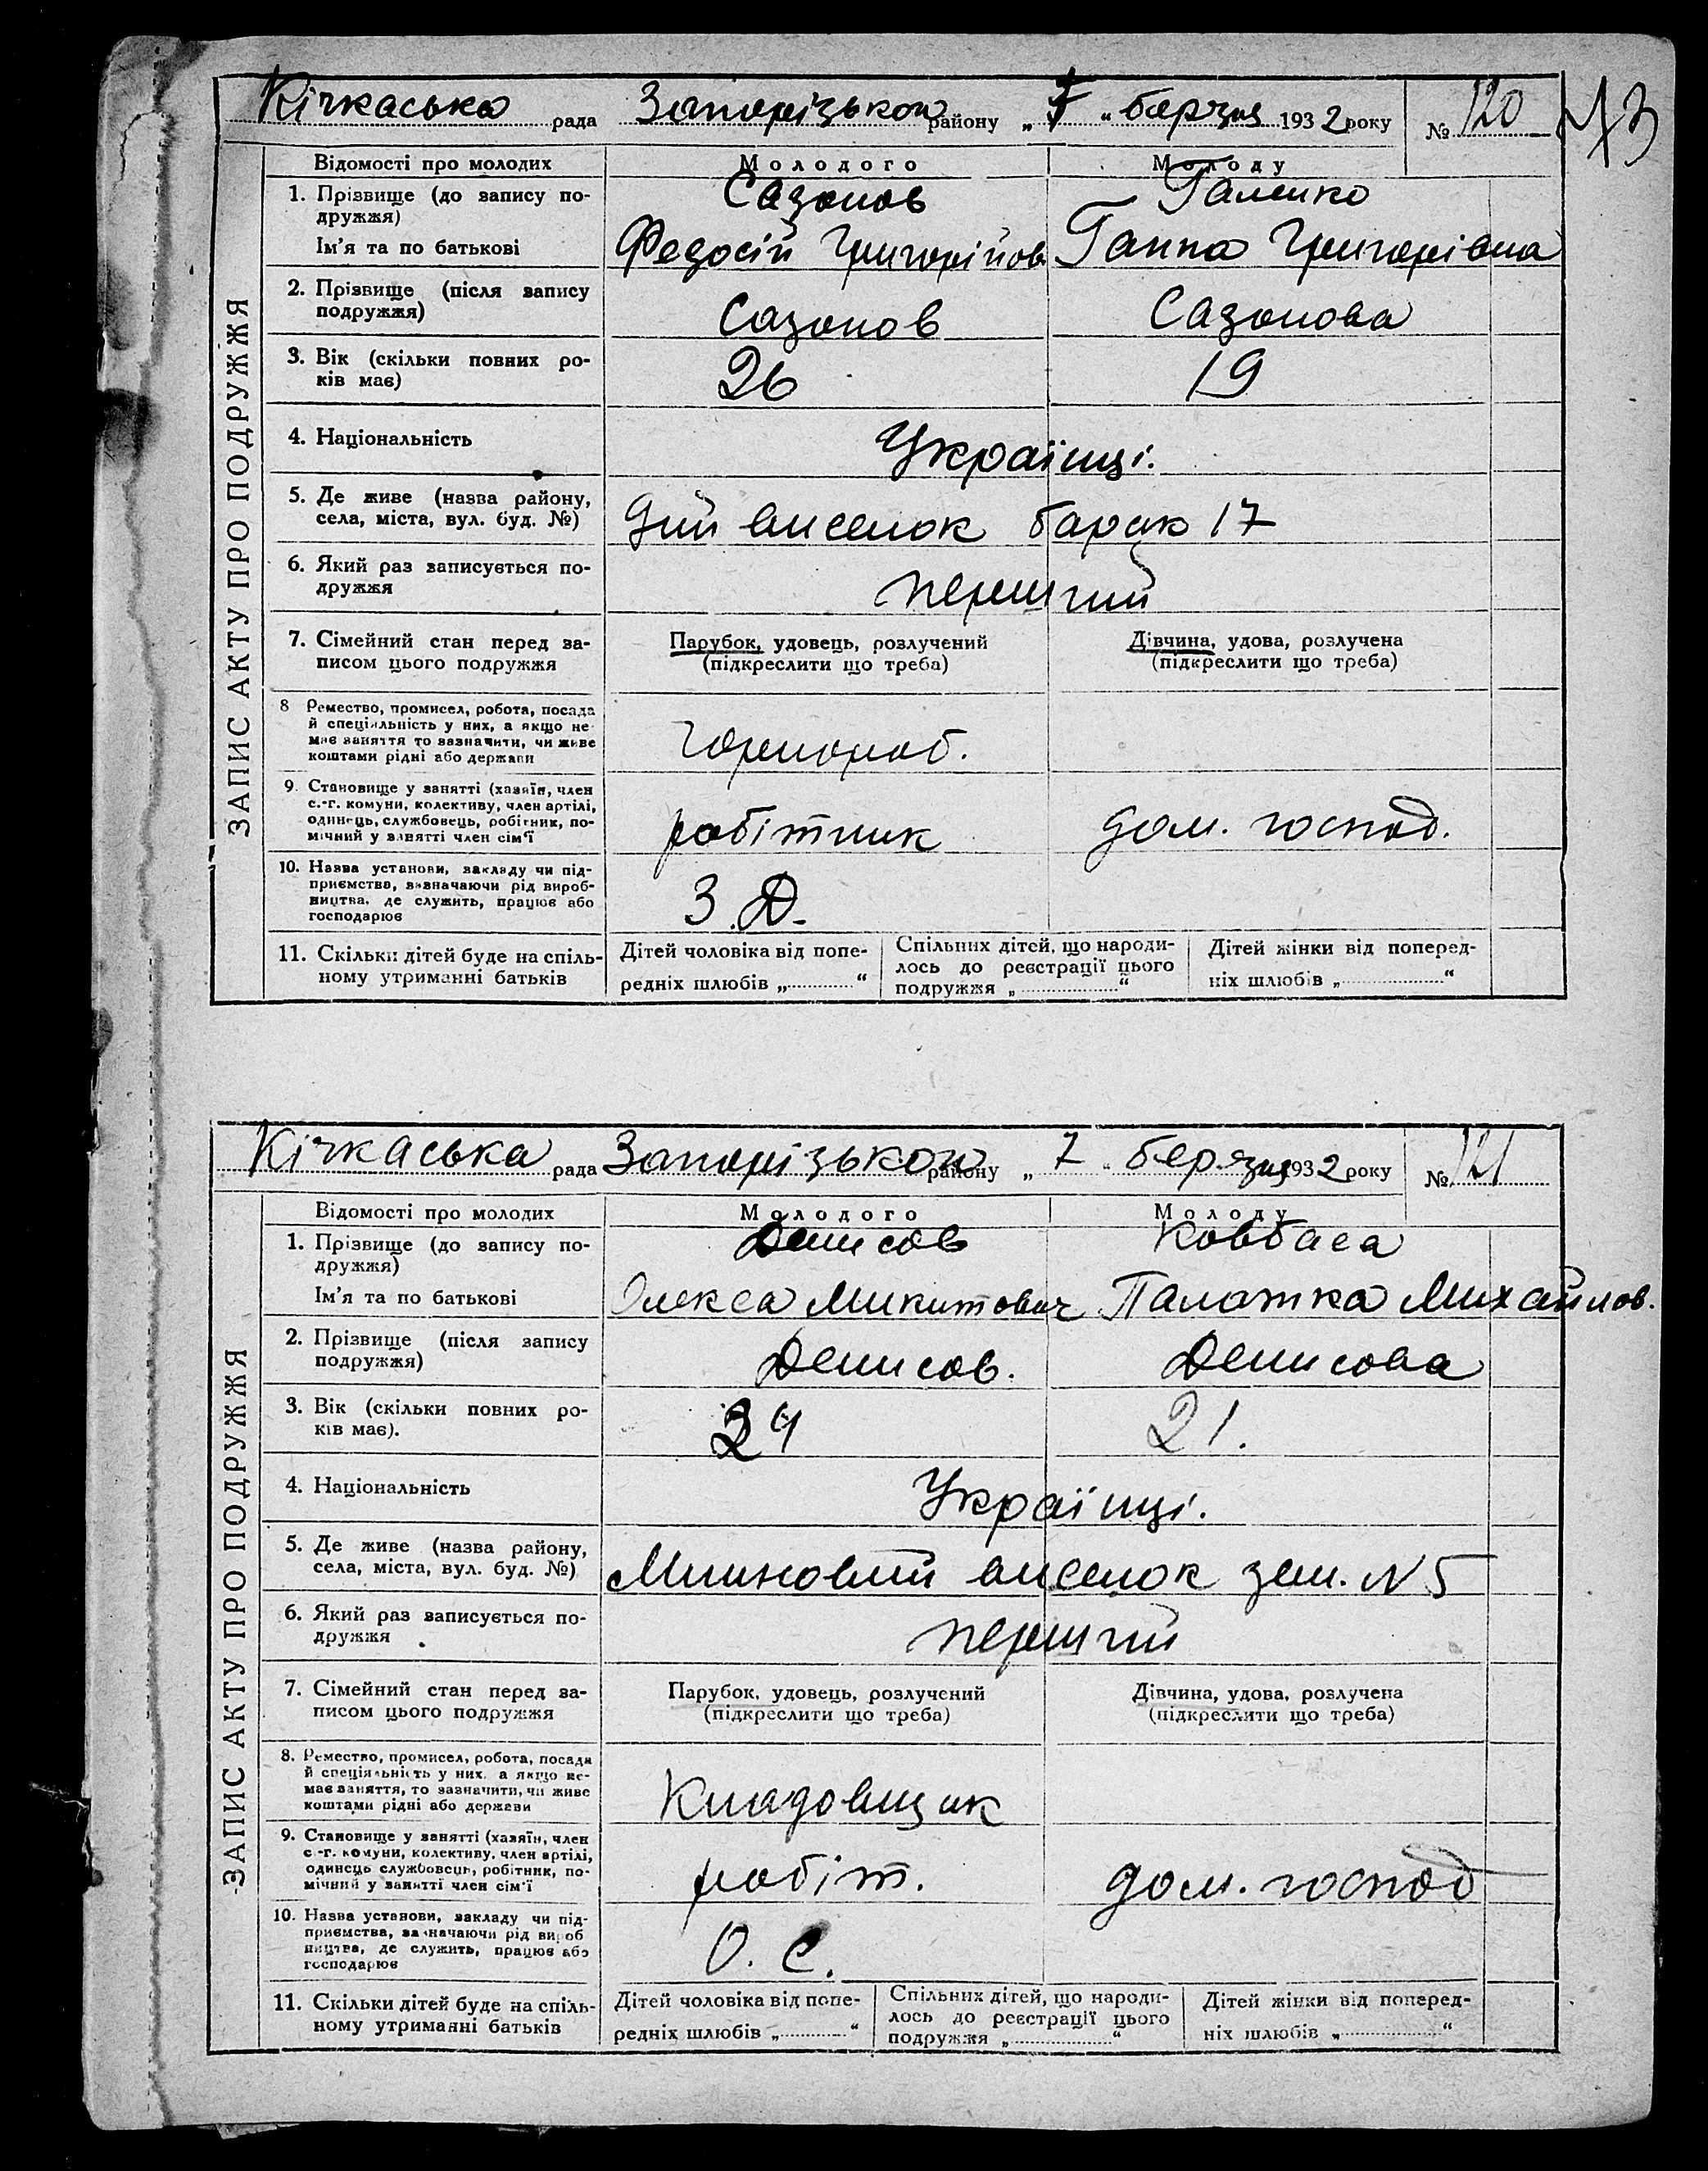 Кічкаська рада Запорізького району „ 7 “ березня 1932 року № 120
43
ЗАПИС АКТУ ПРО ПОДРУЖЖЯ
Відомості про молодих Молодого Молоду
1. Прізвище (до запису по- Сазонов Галенко
дружжя)
Ім'я та по батькові Федосій Григорійов Ганна Григорівна
2. Прізвище (після запису
подружжя) Сазонов Сазонова
3. Вік (скільки повних ро-
ків має) 26 19
4. Національність Українці.
5. Де живе (назва району,
села, міста, вул. буд. №) виселок барак 17
6. Який раз записується по-
дружжя перший
7. Сімейний стан перед за- Парубок, удовець, розлучений Дівчина, удова, розлучена
писом цього подружжя (підкреслити що треба) (підкреслити що треба)
8 Ремество, промисел, робота, посада
й спеціяльність у них, а якщо не
має заняття то зазначити, чи живе чорнороб.
коштами рідні або держави
9. Становище у занятті (хазяїн, член
с.-г. комуни, колективу, член артілі,
одинець, службовець, робітник, по- робітник дом. господ.
мічний у занятті член сім'ї
10. Назва установи, закладу чи під-
приємства, зазначаючи рід вироб-
ництва, де служить, працює або З. Д.
господарює
11. Скільки дітей буде на спіль- Дітей чоловіка від попе- Спільних дітей, що народи- Дітей жінки від поперед-
ному утриманні батьків редніх шлюбів „ “ лось до реєстрації цього ніх шлюбів „ “
подружжя „ “
Кічкаська рада Запорізького району „ 7 “ березня 1932 року № 121
ЗАПИС АКТУ ПРО ПОДРУЖЖЯ
Відомості про молодих Молодого Молоду
1. Прізвище (до запису по- Денисов Ковбаса
дружжя)
Ім'я та по батькові Олекса Микитович Палажка Михайлов.
2. Прізвище (після запису
подружжя) Денисов. Денисова
3. Вік (скільки повних ро-
ків має). 24 21.
4. Національність Українці.
5. Де живе (назва району,
села, міста, вул. буд. №) виселок зем. № 5
6. Який раз записується по-
дружжя перший
7. Сімейний стан перед за- Парубок, удовець, розлучений Дівчина, удова, розлучена
писом цього подружжя (підкреслити що треба) (підкреслити що треба)
8. Ремество, промисел, робота, посада
й спеціяльність у них, а якщо не-
має заняття, то зазначити, чи живе Кладовщик
коштами рідні або держави
9. Становище у занятті (хазяїн, член
с.-г. комуни, колективу, член артілі,
одинець службовець, робітник, по- робіт. дом. господ
мічний у занятті член сім'ї
10. Назва установи, закладу чи під-
приємства, зазначаючи рід вироб
ництва, де служить, працює або О. С.
господарює
11. Скільки дітей буде на спіль- Дітей чоловіка від попе- Спільних дітей, що народи- Дітей жінки від поперед-
ному утриманні батьків редніх шлюбів „ “ лось до реєстрації цього ніх шлюбів „ “
подружжя „ “